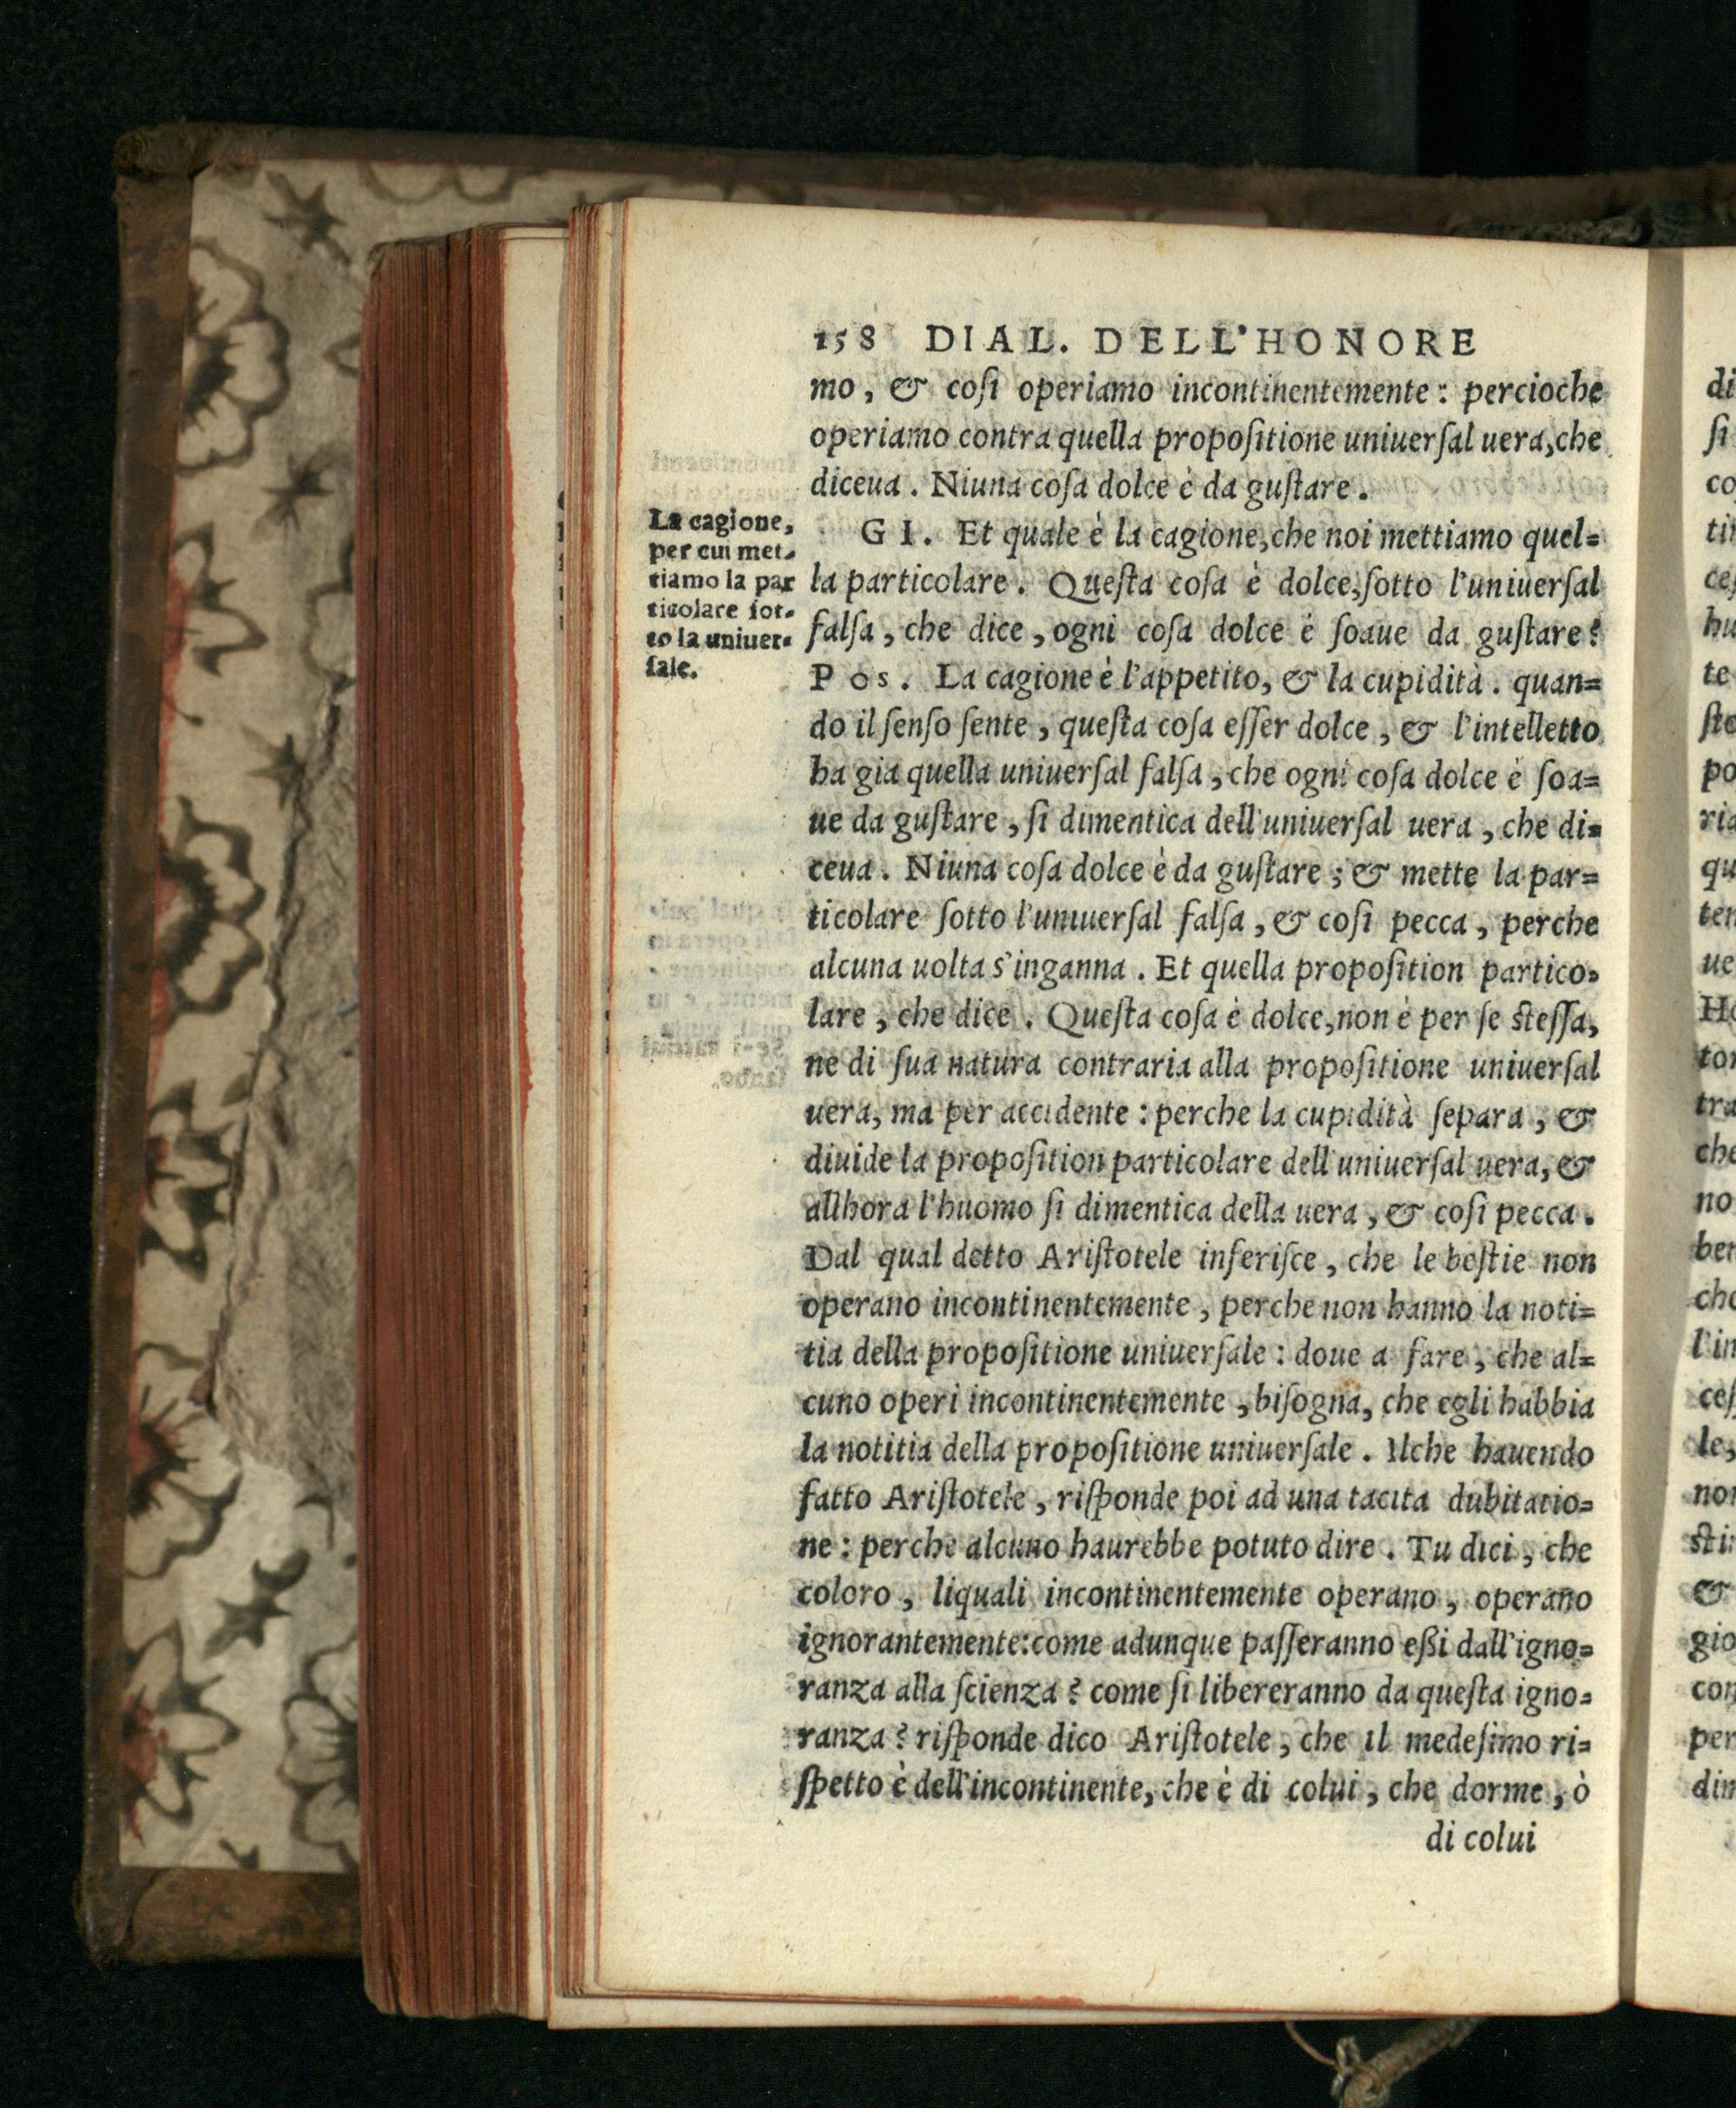 158 DIAL. DELL'HONORE
mo, & coſi operiamo incontinentemente: percioche
operiamo contra quella propoſitione uniuerſal uera, che
diceua. Niuna coſa dolce è da guſtare.
La cagione,
per cui met-
tiamo la par
ticolare ſot-
to la uniuer-
ſale.
GI. Et quale è la cagione, che noi mettiamo quel=
la particolare. Queſta coſa è dolce, ſotto l'uniuerſal
falſa, che dice, ogni coſa dolce è ſoaue da guſtare?
Pos. La cagione è l'appetito, & la cupidità. quan=
do il ſenſo ſente, queſta coſa eſſer dolce, & l'intelletto
ha gia quella uniuerſal falſa, che ogni coſa dolce è ſoa=
ue da guſtare, ſi dimentica dell'uniuerſal uera, che di=
ceua. Niuna coſa dolce è da guſtare; & mette la par=
ticolare ſotto l'uniuerſal falſa, & coſi pecca, perche
alcuna uolta s'inganna. Et quella propoſition partico=
lare, che dice. Queſta coſa è dolce, non è per ſe ſteſſa,
ne di ſua natura contraria alla propoſitione uniuerſal
uera, ma per accidente: perche la cupidità ſepara, &
diuide la propoſition particolare dell'uniuerſal uera, &
allhora l'huomo ſi dimentica della uera, & coſi pecca.
Dal qual detto Ariſtotele inferiſce, che le beſtie non
operano incontinentemente, perche non hanno la noti=
tia della propoſitione uniuerſale: doue a fare, che al=
cuno operi incontinentemente, biſogna, che egli habbia
la notitia della propoſitione uniuerſale. Ilche hauendo
fatto Ariſtotele, riſponde poi ad una tacita dubitatio=
ne: perche alcuno haurebbe potuto dire. Tu dici, che
coloro, liquali incontinentemente operano, operano
ignorantemente: come adunque paſſeranno eßi dall'igno=
ranza alla ſcienza? come ſi libereranno da queſta igno=
ranza? riſponde dico Ariſtotele, che il medeſimo ri=
ſpetto è dell'incontinente, che è di colui, che dorme, ò
di colui